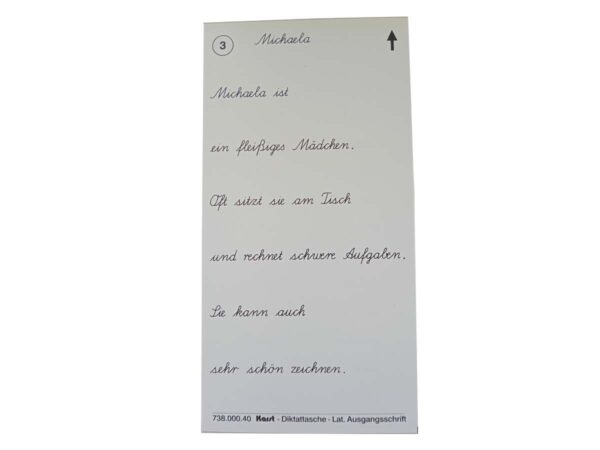 3 Michaela
Michaela ist
ein fleißiges Mädchen.
Oft sitzt sie am Tisch
und rechnet schwere Aufgaben.
Sie kann auch
sehr schön zeichnen.
738.000.40 Karst - Diktattasche - Lat. Ausgangsschrift